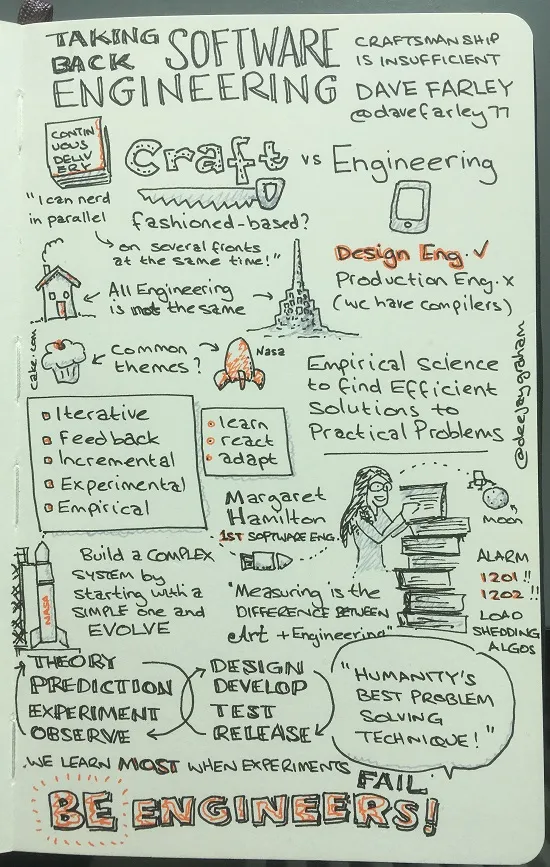 TAKING BACK SOFTWARE ENGINEERING
CRAFTSMANSHIP
IS INSUFFICIENT
DAVE FARLEY
@davefarley77
CONTIN
UOUS
DELIV
ERY
Craft vs Engineering
"I can nerd
in parallel
on several fronts
at the same time!"
fashioned-based?
Design Eng. ✓
Production Eng. x
(we have compilers)
All Engineering
is not the same
cake.com
Common
themes?
Nasa
Empirical Science
to find Efficient
Solutions to
Practical Problems
@deejaygraham
Iterative
Feedback
Incremental
Experimental
Empirical
learn
react
adapt
Margaret
Hamilton
1ST SOFTWARE ENG.
MOON
ALARM
1201!!
1202!!
LOAD
SHEDDING
ALGOS
NASA
Build a COMPLEX
SYSTEM by
starting with a
SIMPLE one and
EVOLVE
"Measuring is the
DIFFERENCE BETWEEN
Art + Engineering"
THEORY
PREDICTION
EXPERIMENT
OBSERVE
DESIGN
DEVELOP
TEST
RELEASE
"HUMANITY'S
BEST PROBLEM
SOLVING
TECHNIQUE!"
WE LEARN MOST WHEN EXPERIMENTS FAIL
BE ENGINEERS!